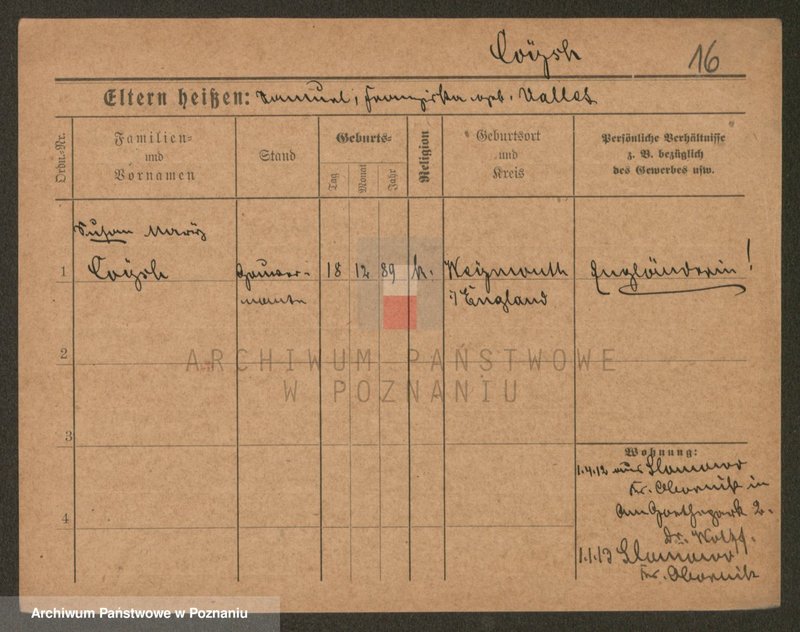 16
Eltern heißen: Samuel, Franziska geb. Vallet
Ordn.-Nr.
Familien- und Vornamen
Stand
Geburts-
Tag
Monat
Jahr
Religion
Geburtsort und Kreis
Persönliche Verhältnisse z. B. bezüglich des Gewerbes usw.
Susan
1
Gouver-
nante
18 12 89 k.
i/ England
Engländerin!
2
ARCHIWUM PAŃSTWOWE
W POZNANIU
3
4
Wohnung:
1.4.12 aus Slomowo
Kr. Obornik in
Am Goethepark 2.
Dr. Wolff.
1.1.13 Slomowo
Kr. Obornik
Archiwum Państwowe w Poznaniu